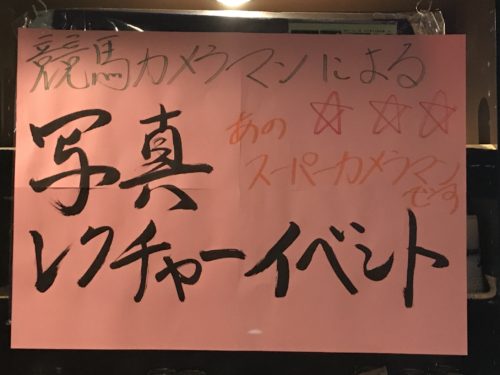 競馬カメラマンによる
写真
あの☆☆☆
スーパーカメラマン
です
レクチャーイベント